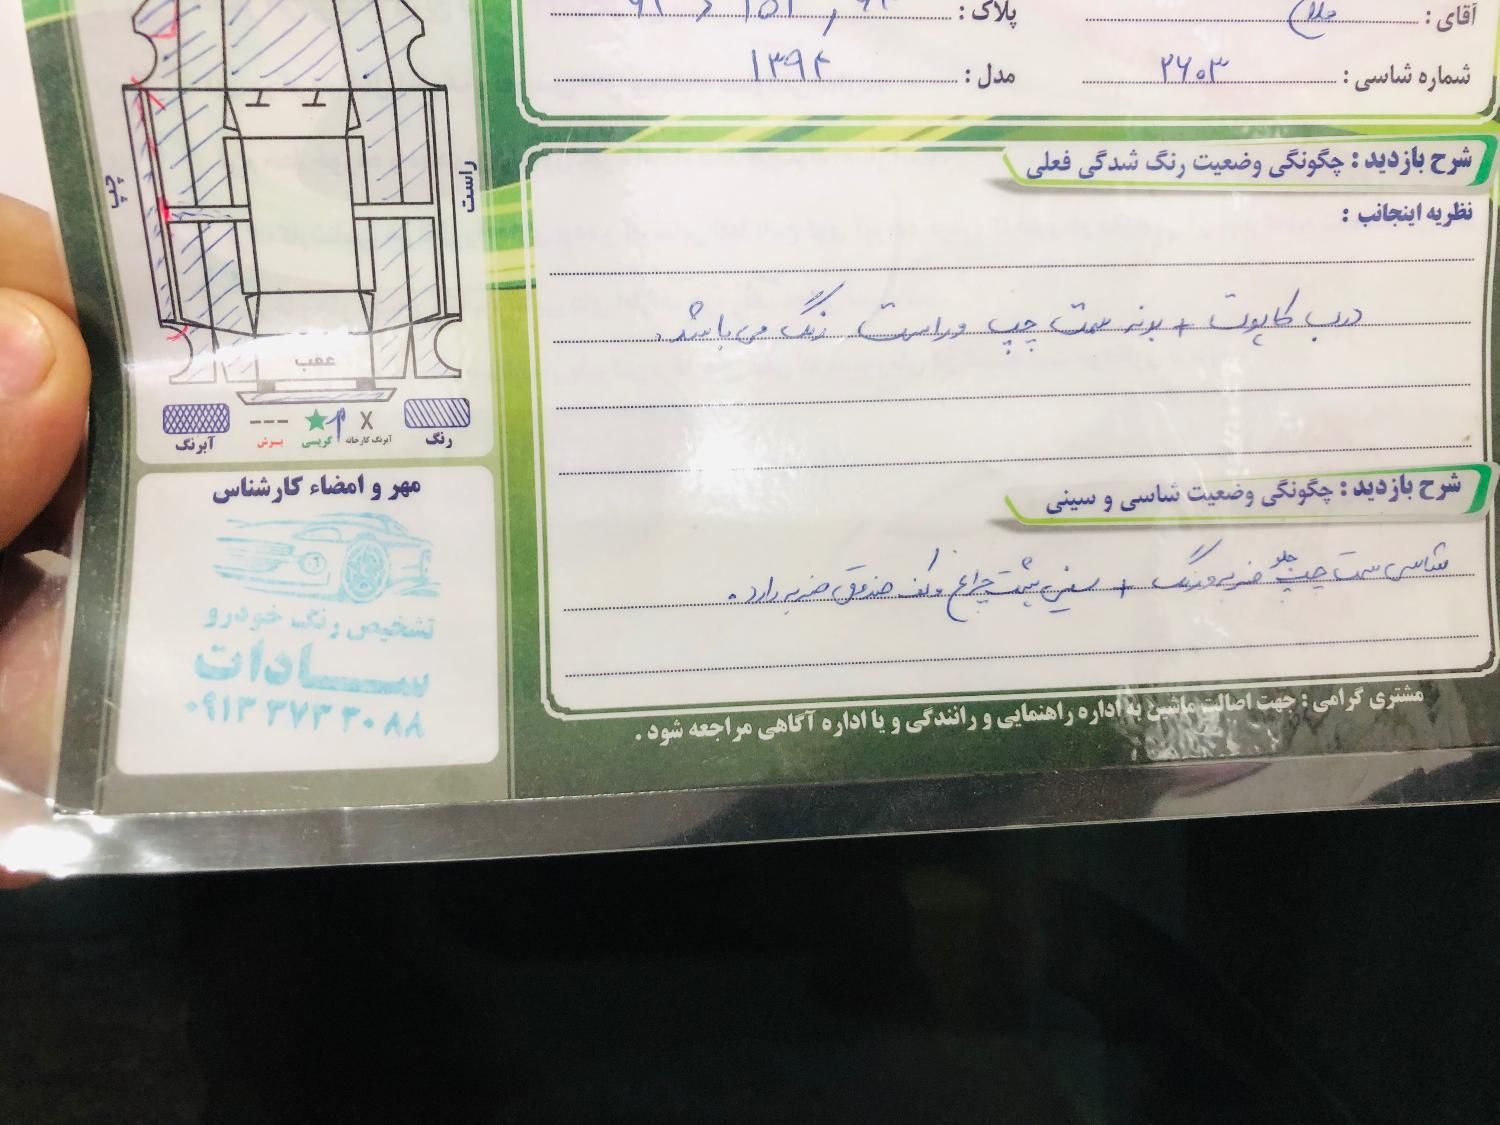 آقای : فلاح
پلاک :
شماره شاسی : ۲۶۰۳
مدل : ۱۳۹۴
شرح بازدید : چگونگی وضعیت رنگ شدگی فعلی
نظریه اینجانب :
درب کاپوت + بدنه سمت چپ و راست رنگ می باشد.
شرح بازدید : چگونگی وضعیت شاسی و سینی
شاسی سمت چپ جلو ضربه و رنگ + سینی پشت چراغ و کف صندوق ضربه دارد.
مشتری گرامی : جهت اصالت ماشین به اداره راهنمایی و رانندگی و یا اداره آگاهی مراجعه شود .
راست
چپ
عقب
رنگ
X آبرنگ کارخانه
گریسی
برش
آبرنگ
مهر و امضاء کارشناس
تشخیص رنگ خودرو
سادات
۰۹۱۳ ۳۷۳ ۳۰ ۸۸